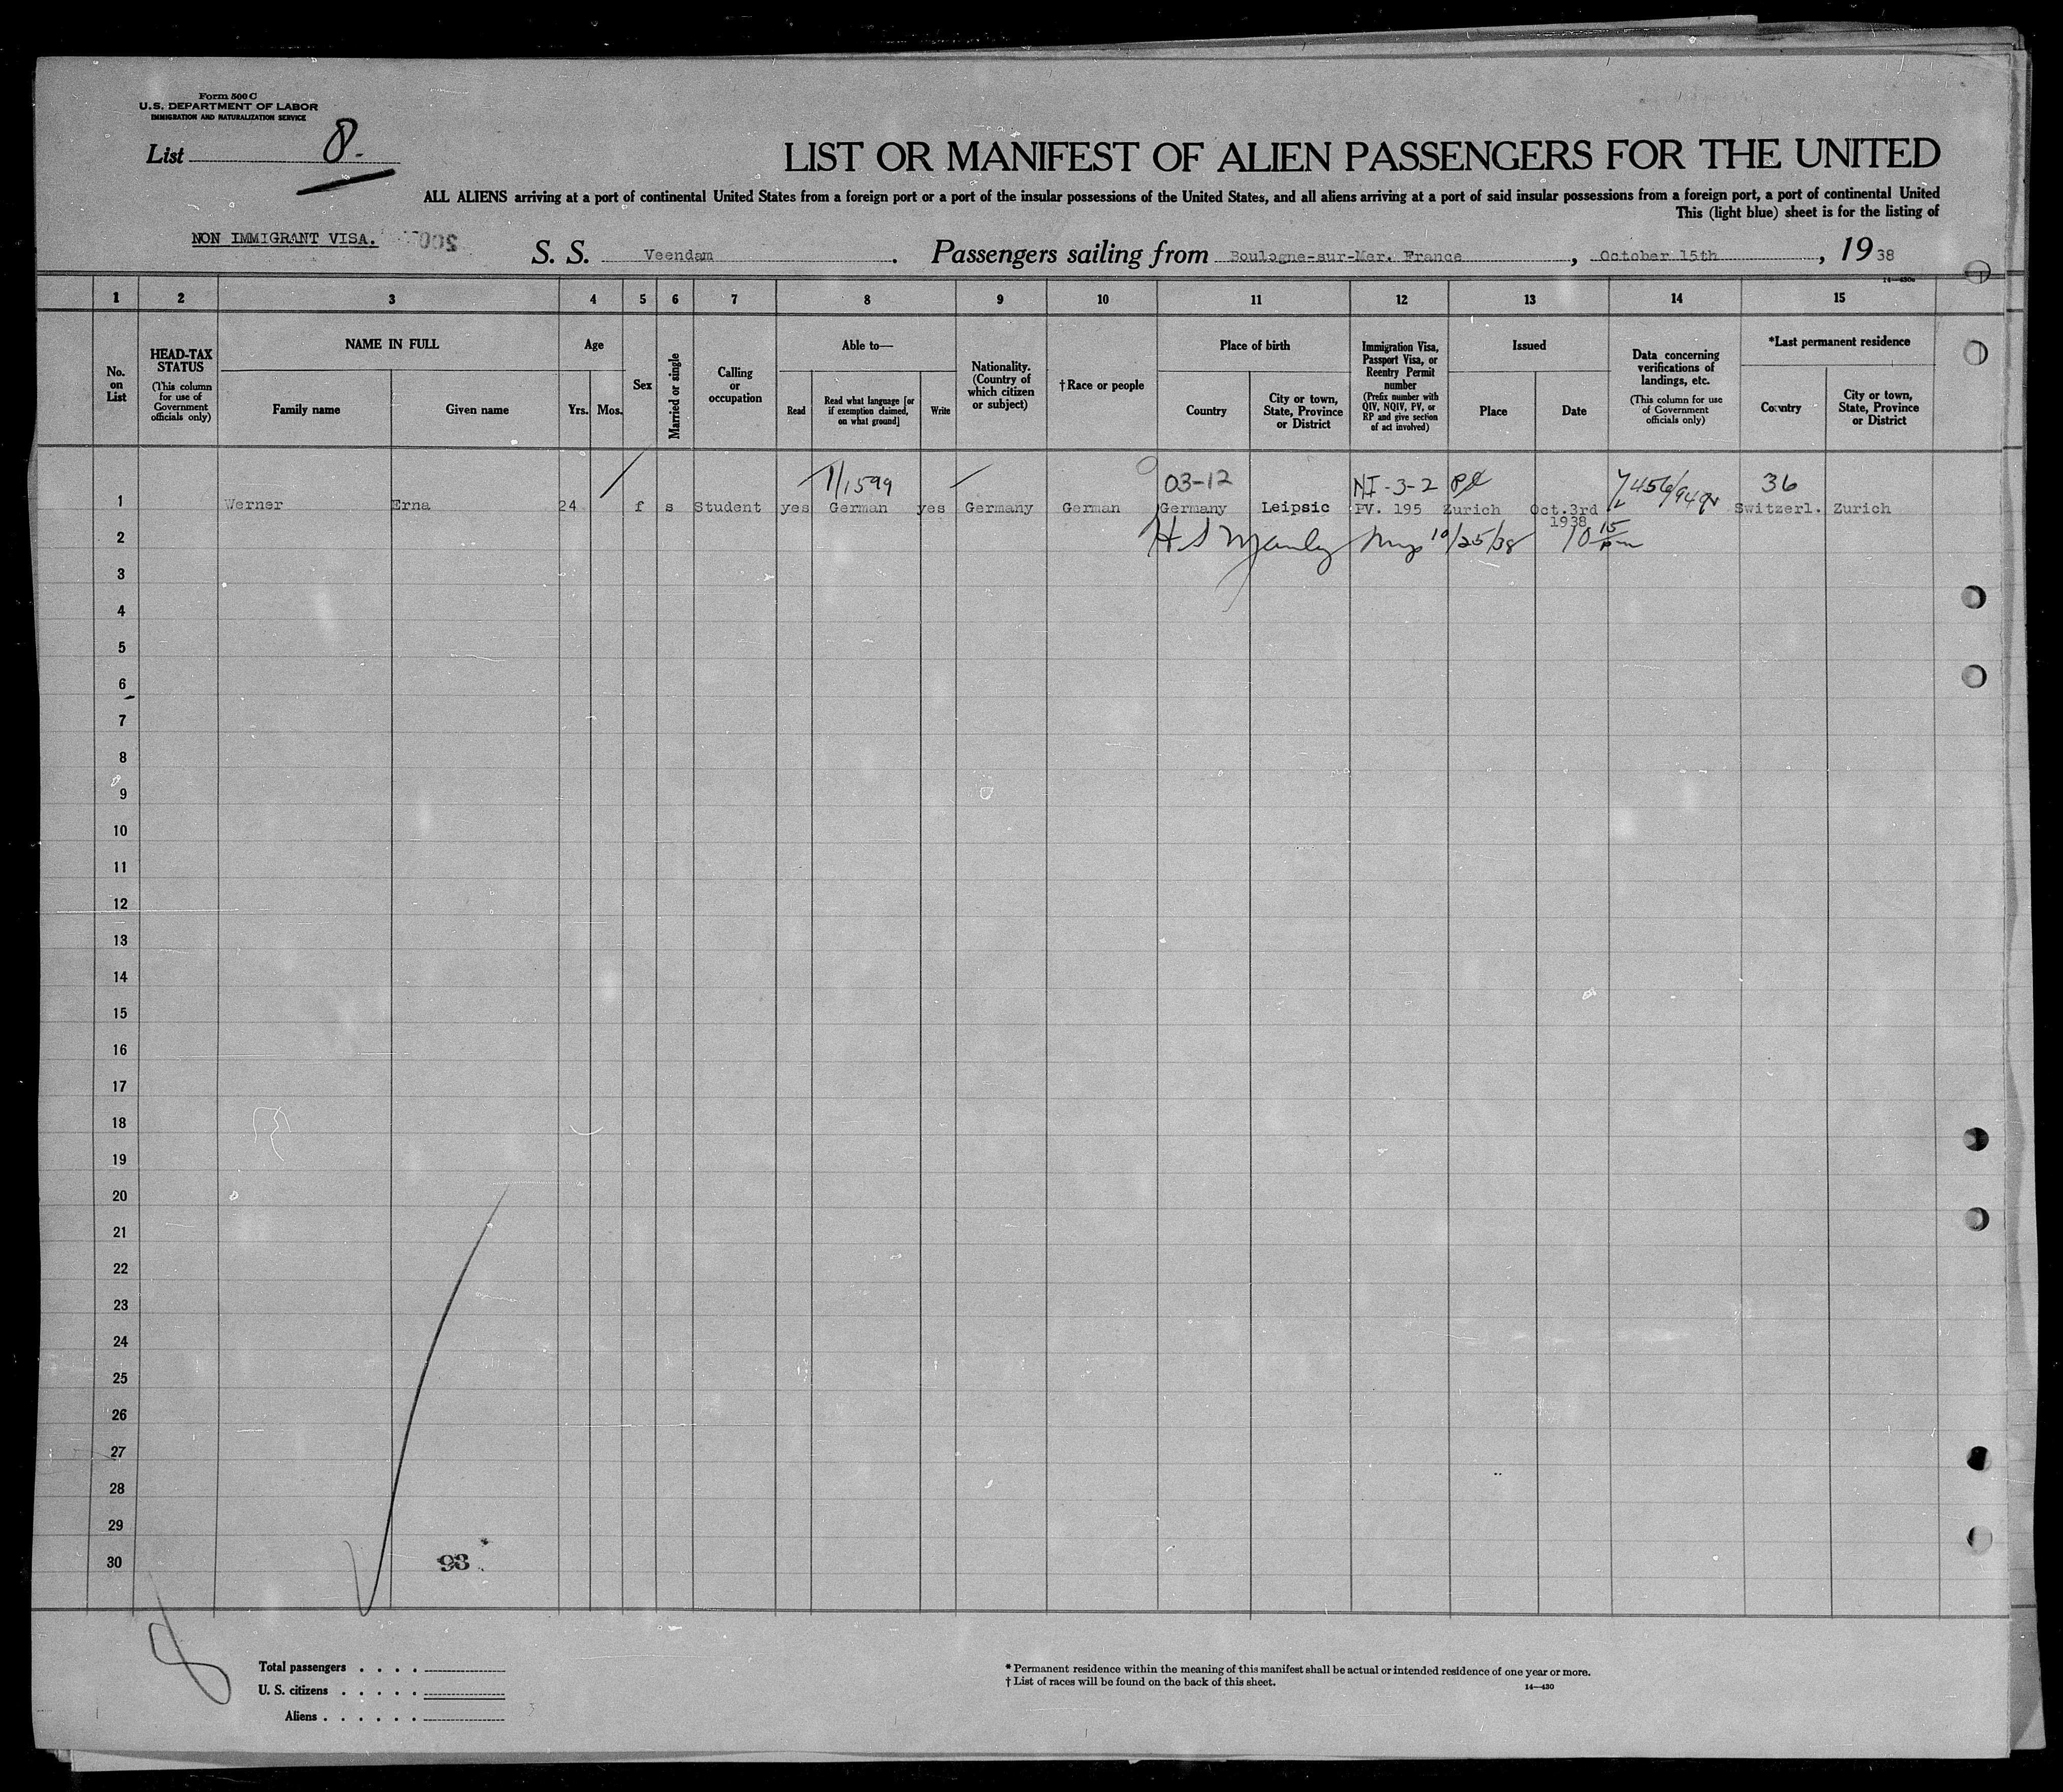 Form 500 C
U.S. DEPARTMENT OF LABOR
IMMIGRATION AND NATURALIZATION SERVICE
List 8.
LIST OR MANIFEST OF ALIEN PASSENGERS FOR THE UNITED
ALL ALIENS arriving at a port of continental United States from a foreign port or a port of the insular possessions of the United States, and all aliens arriving at a port of said insular possessions from a foreign port, a port of continental United
This (light blue) sheet is for the listing of
NON IMMIGRANT VISA.
S. S. Veendam. Passengers sailing from Boulogne-sur-Mer. France, October 15th, 1938
1 2 3 4 5 6 7 8 9 10 11 12 13 14 15
No. on List
HEAD-TAX STATUS (This column for use of Government officials only)
NAME IN FULL
Family name Given name
Age
Yrs. Mos.
Sex
Married or single
Calling or occupation
Able to—
Read
Read what language [or if exemption claimed, on what ground]
Write
Nationality. (Country of which citizen or subject)
†Race or people
Place of birth
Country
City or town, State, Province or District
Immigration Visa, Passport Visa, or Reentry Permit number (Prefix number with QIV, NQIV, PV, or RP and give section of act involved)
Issued
Place Date
Data concerning verifications of landings, etc. (This column for use of Government officials only)
*Last permanent residence
Country
City or town, State, Province or District
1/1599 03-12 NI-3-2 36
1 Werner Erna 24 f s Student yes German yes Germany German Germany Leipsic PV. 195 Zurich Oct.3rd 1938 Switzerl. Zurich
2 10/25/38 10 15 pm
3
4
5
6
7
8
9
10
11
12
13
14
15
16
17
18
19
20
21
22
23
24
25
26
27
28
29
30
93
8
Total passengers
U. S. citizens
Aliens
* Permanent residence within the meaning of this manifest shall be actual or intended residence of one year or more.
† List of races will be found on the back of this sheet.
14—430